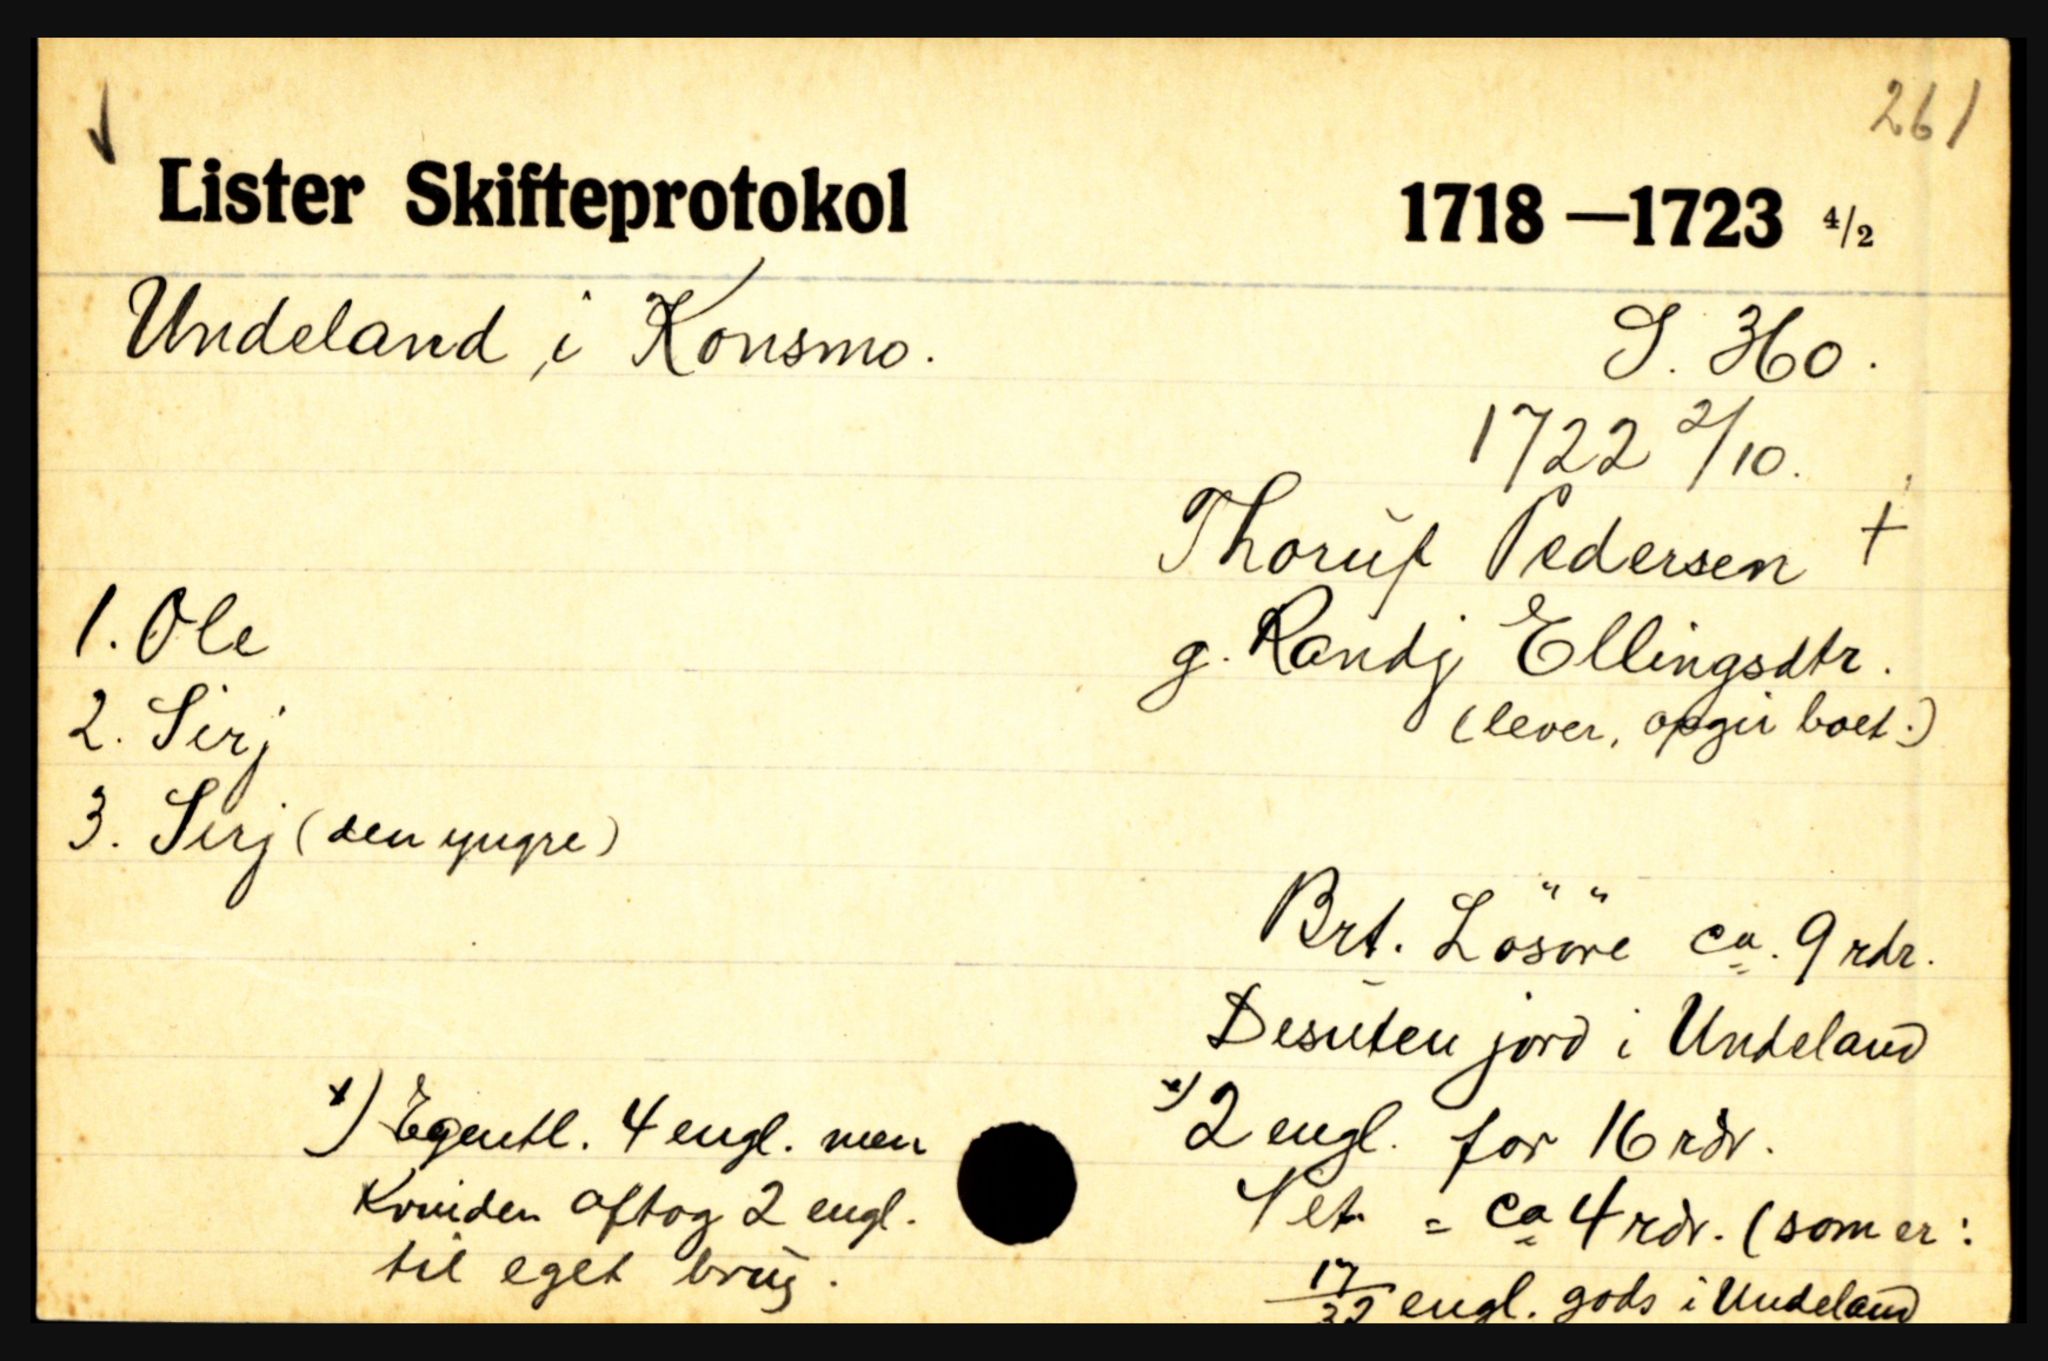 261
Lister Skifteprotokol 1718—1723 4/2
Undeland, i Konsmo. S. 360.
1722 2/10.
Thorŭf Pedersen +
1. Ole
g. Randj Ellingsdtr.
2. Sirj
(lever, opgir boet.)
3. Sirj (den yngre)
Brt. Lösöre ca. 9 rdr.
Desŭten jord i Undeland
x) 2 engl. for 16 rdr.
Net = ca 4 rdr. (som er:
17/32 engl. gods i Undeland
x) Egentl. 4 engl. men
Kvinden aftog 2 engl.
til eget brŭg.